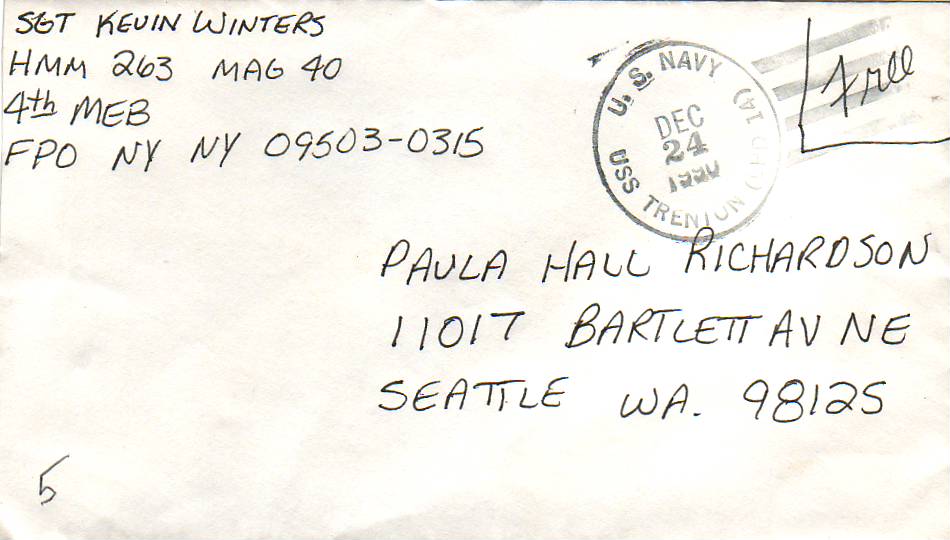 SGT KEVIN WINTERS
HMM 263 MAG 40
4th MEB
FPO NY NY 09503-0315
U.S. NAVY
DEC
24
1990
USS TRENTON (LPD 14)
Free
PAULA HALL RICHARDSON
11017 BARTLETT AV NE
SEATTLE WA. 98125
5